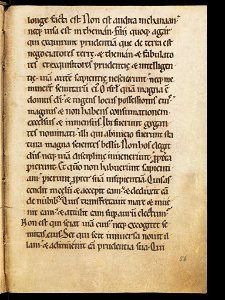 longe facta est. Non est audita in chanaan
neq; uisa est in theman. filii quoq; agar
qui exquirunt prudentiam que de terra est
negociatores terre. & theman. & fabulato
res & exquisitores prudentie & intelligen
tie. uiam autē sapientie nescierunt neq;
isrł quam magna ē
domus dī. & ingens locus possessionis eius.
magnus & non habens consummationem.
excelsus & immensus. Ibi fuerunt gygan
tes nominati illi qui ab initio fuerunt sta
tura magna scientes bellū. Non hos elegit
dn̄s neq; uiam discipline inuenerunt. ppt̄ea
pierunt. Et qm̄ non habuerunt sapienti
am. pierunt ppt̄ suam insipientiā. Quis as
cendit in celū & accepit eam. & eduxit eā
de nubib;. Quis transfretauit mare & inue
nit eam. & attulit eam sup aurū electum.
Non est qui sciat uias eius. neq; se
mitas eius. Sed qui scit uniuersa nouit il
lam. & adinuenit eā prudentia sua. Qui